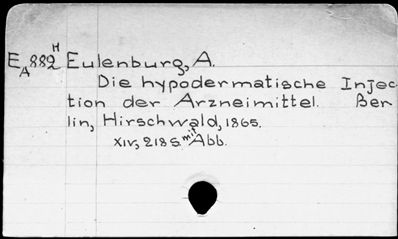 E A 882 H Eulenburg, A.
Die hypodermatische Injec-
tion der Arzneimittel. Ber
lin, Hirschwald, 1865.
XIV, 218 S. mit Abb.